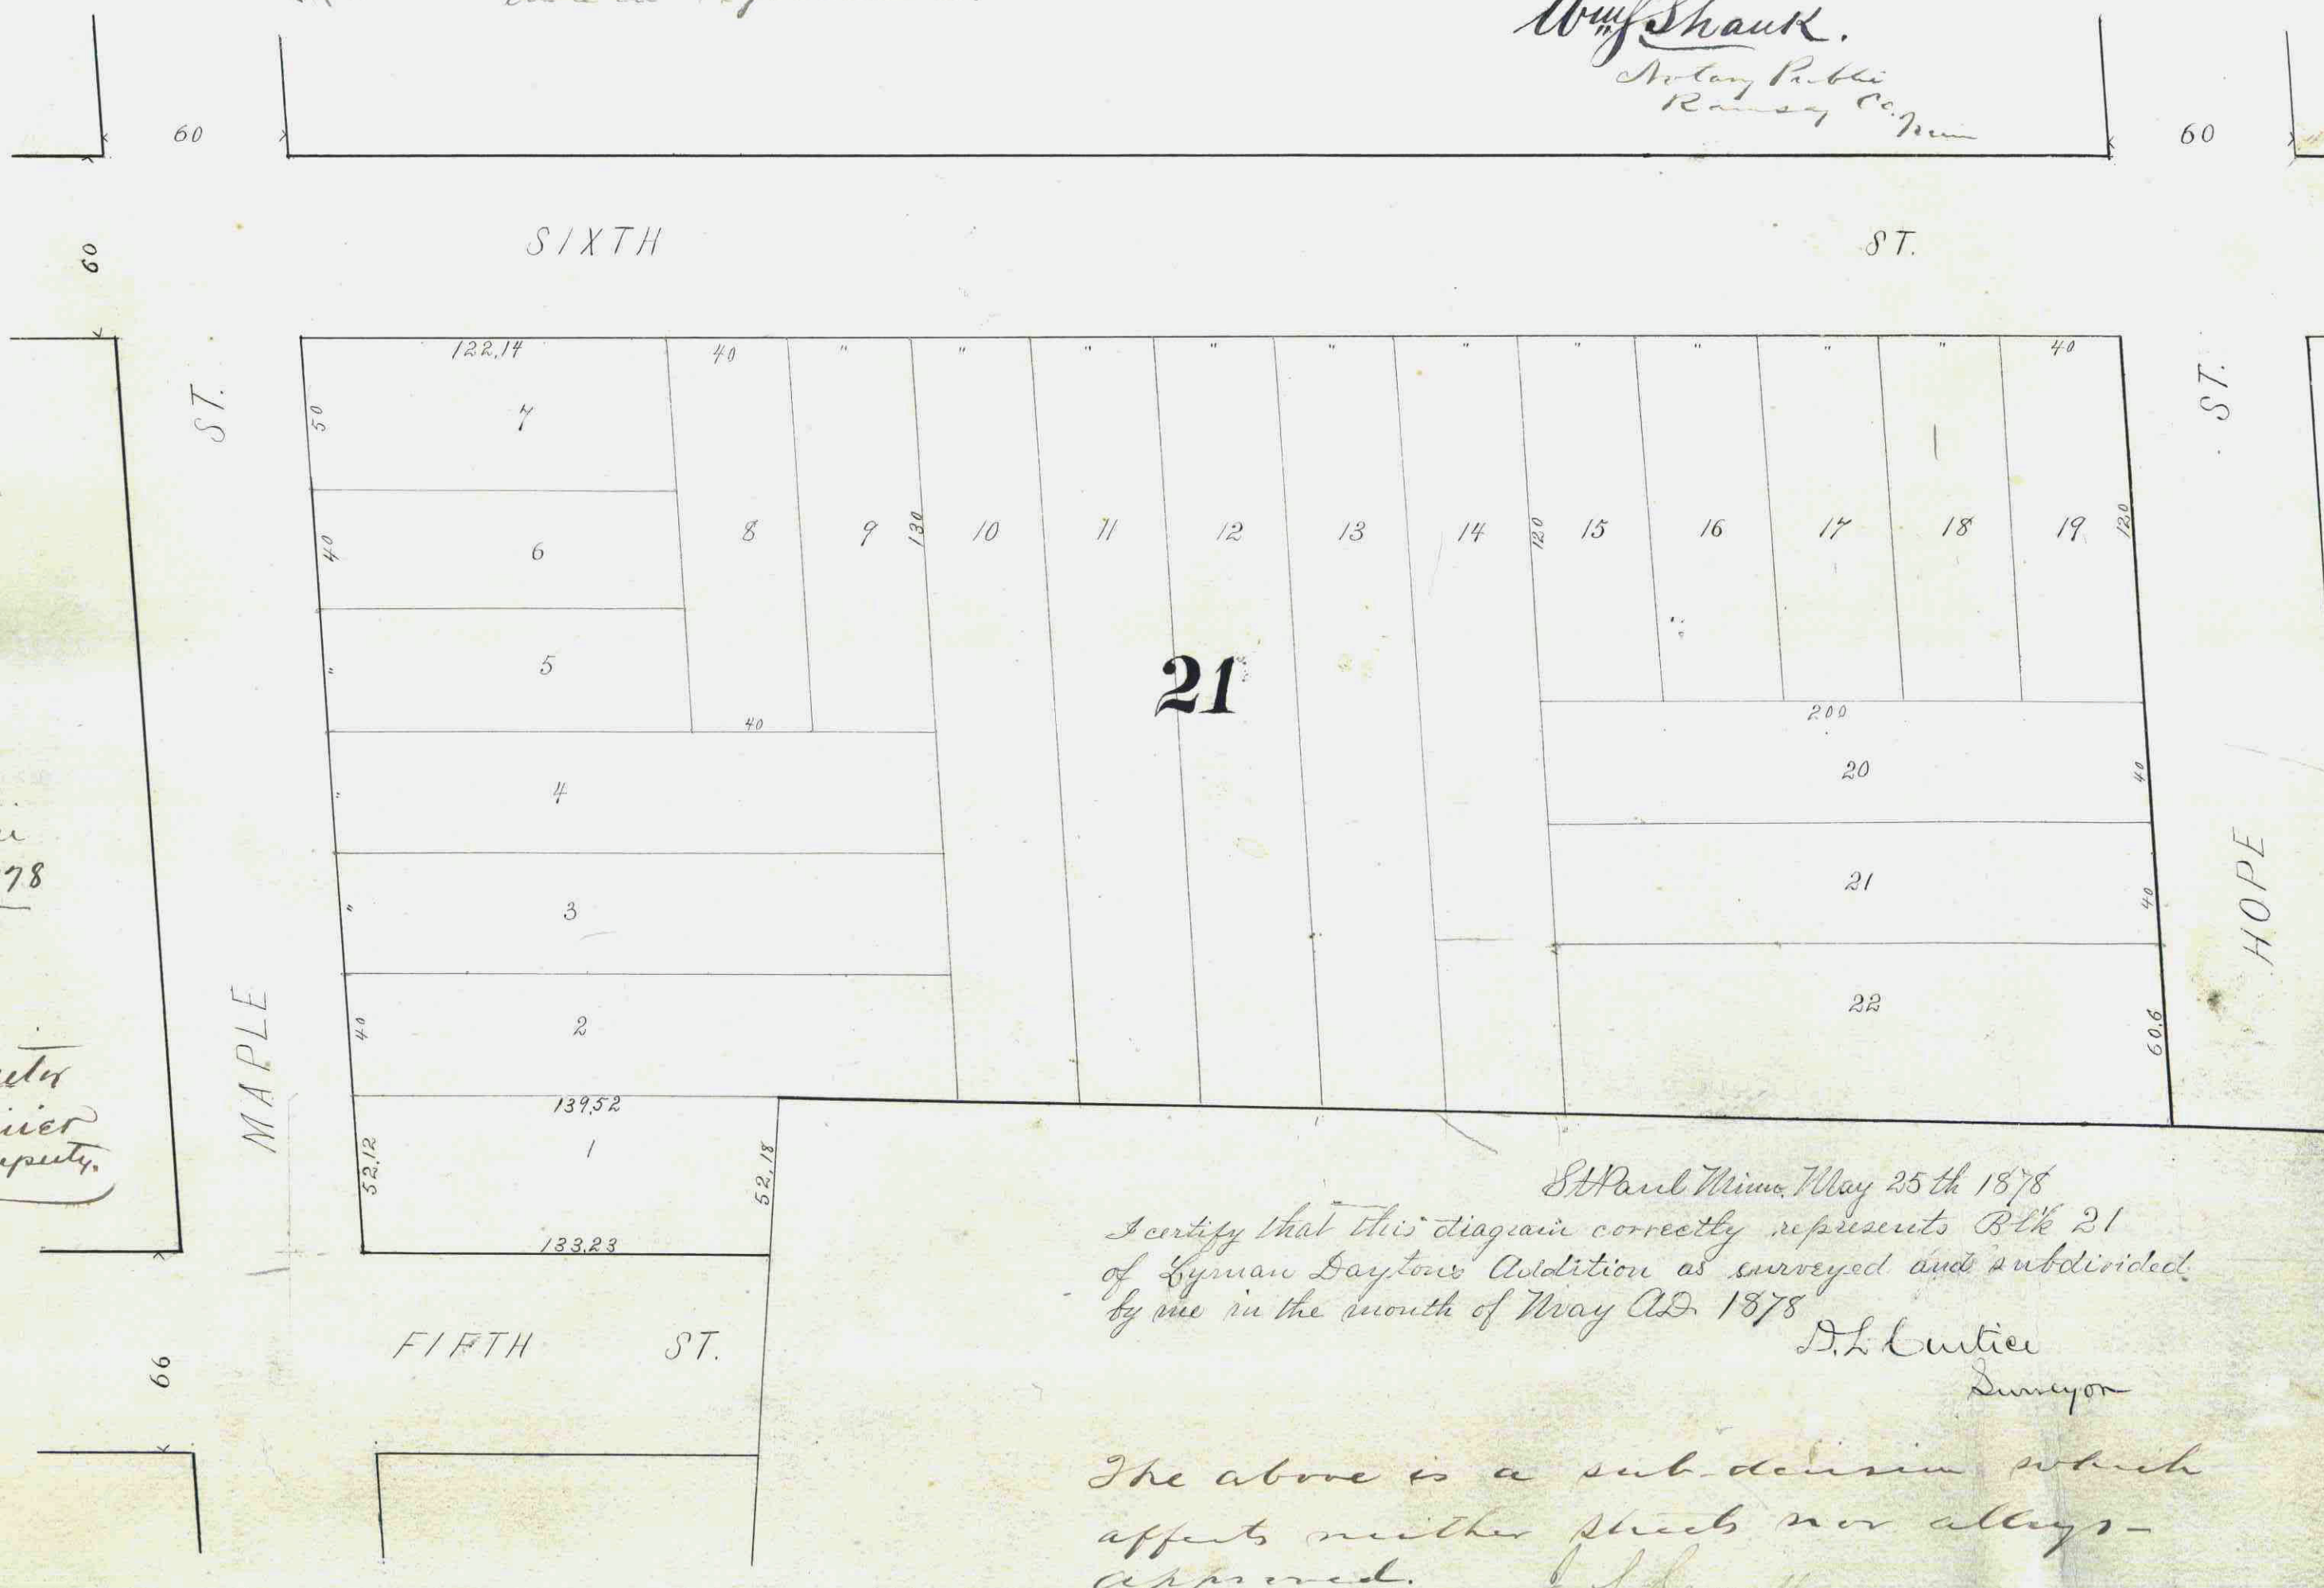 Wm J Shank.
Notary Public
Ramsey Co.
Minn
60
60
60
SIXTH ST.
122.14 40 " " " " " " " " " " 40
ST.
ST.
50
7
40
6
8 9 130 10 11 12 13 14 120 15 16 17 18 19 120
"
5
21
40
200
"
4
20 40
78
"
3
21 40
HOPE
40
2
22
60.6
MAPLE
139.52
52.12
1
52.18
133.23
St Paul Minn. May 25th 1878
I certify that this diagram correctly represents Blk 21
of Lyman Dayton's Addition as surveyed and subdivided
by me in the month of May A.D. 1878
D. L. Curtice
Surveyor
FIFTH ST.
66
The above is a sub-division which
affects neither streets nor alleys-
approved.